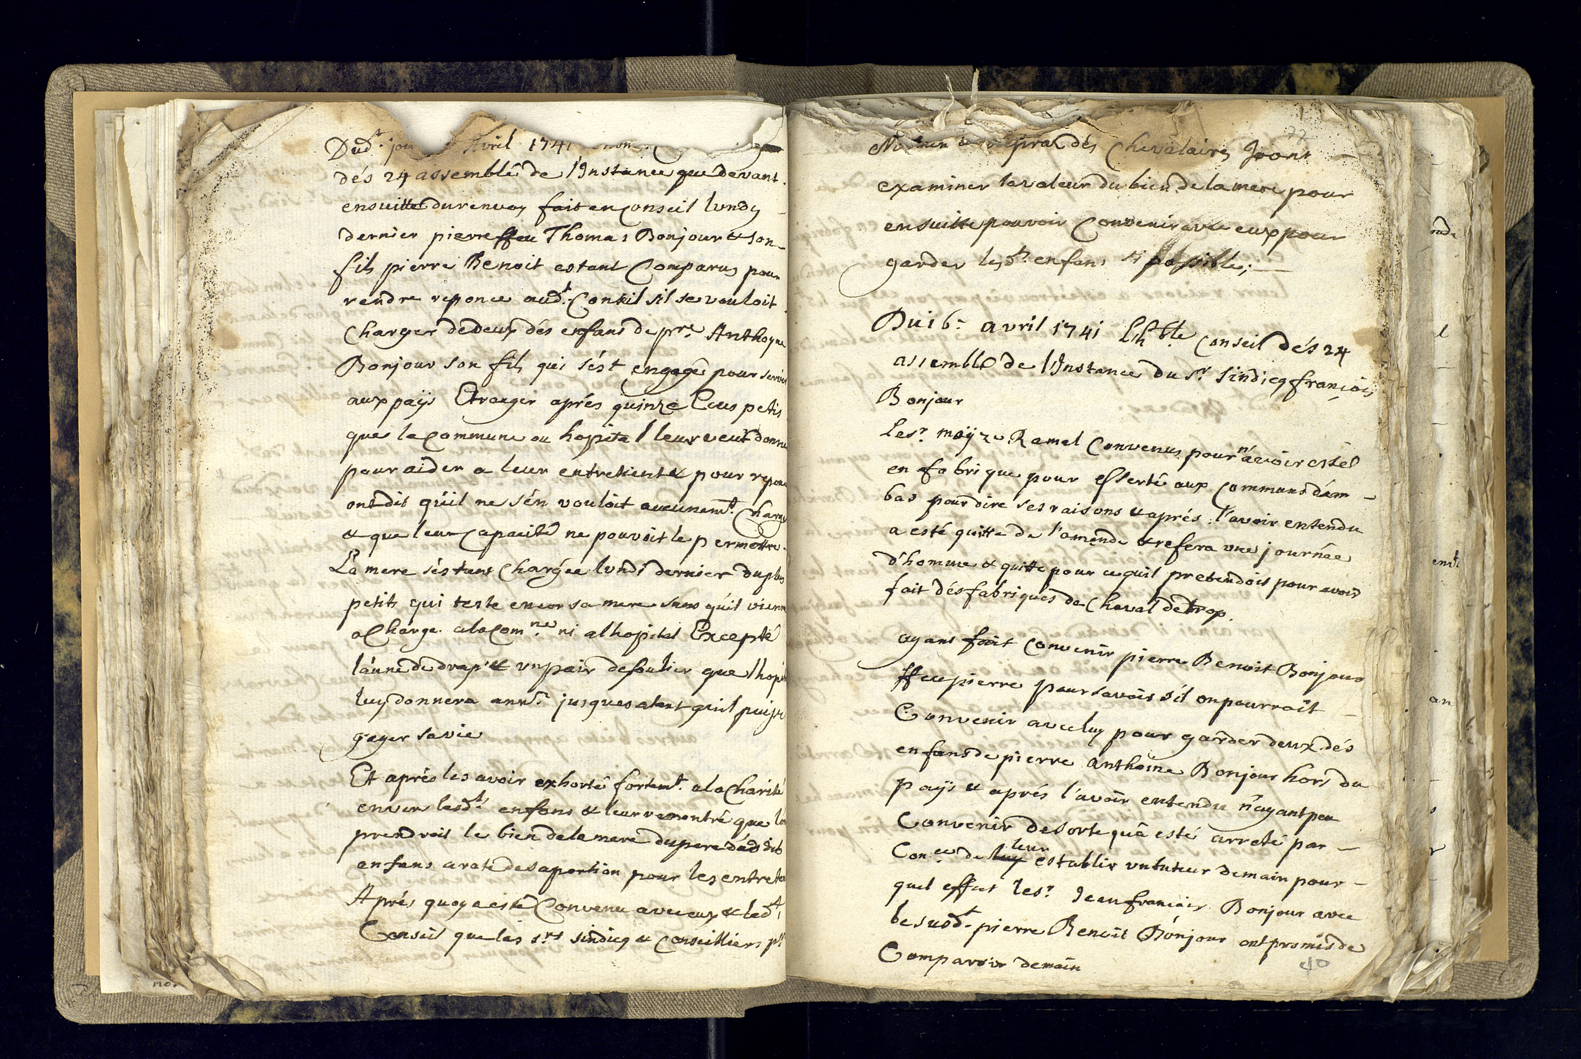 Dud.t jou Avril 1741
dés 24 assemblé de l'Instance que devant
ensuitte du renvoy fait en Conseil lundy
dernier pierre ffeu Thomas Bonjour & son
fils pierre Benoit estant Comparus pour
rendre reponce aud.t Conseil sil se vouloit
Charger de deux dés enfans de p.re Anthoyne
Bonjour son fils qui s'ést engagé pour servir
aux pays Etranger aprés quinze Ecus petis
que la Commune ou hopital leur veut donne
pour aider a leur entretient & pour repon
ont dit qu'il ne s'én vouloit aucunem.t Charg
& que leur Capacité ne pouvoit le permettre
La mere s'éstant Chargée lundi dernier du plus
petits qui teste encor sa mere sans qu'il vienne
a Charge a la Com.ne ni al hopital Excepté
l'aune de drap & un pair de soulier que l'hopi
luy donnera ann.t jusques a tant qu'il puisse
gager sa vie
Et aprés les avoir exhorté fortem.t a la Charité
enver lesd.ts enfans & leur remontré que lon
prendroit le bien de la mere du pere désdits
enfans a rate de sa portion pour les entrete
Aprés quoy a esté Convenu avec eux & led.t
Conseil que les s.rs sindicq & Conseilliers p.rs
77
des Chevalaires Iront
examiner la valeur du bien de la mere pour
en suitte pouvoir Convenir avec eux pour
garder lesd.ts enfans si possible.
Du 16.e avril 1741 L'h.ble Conseil dés 24
assemblé de l'Instance du s.r sindicq françois
Bonjour
Le s.r moÿze Ramel Convenus pour n'avoir esté
en fabrique pour essertè aux Communs d'ém
bas pour dire ses raisons & aprés l'avoir entendu
a esté quitte de l'amende & refera une journée
d'homme & quitte pour ce qu'il pretendois pour avoir
fait dés fabriques de Cheval de trop.
ayans fait Convenir pierre Benoit Bonjour
ffeu pierre pour savoir s'il on pourroit
Convenir avec luy pour garder deux dés
enfans de pierre anthoine Bonjour hors du
païs & aprés l'avoir entendu n'ayant peu
Convenir de sorte qu'a esté arreté par
Con.ce de leur establir un tuteur demain pour
quel effect le s.r Jean françois Bonjour avec
le susd.t pierre Benoit Bonjour ont promis de
Comparoir demain
40